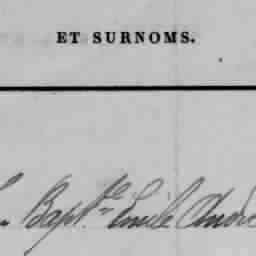 ET SURNOMS.
Bapt.te Emile